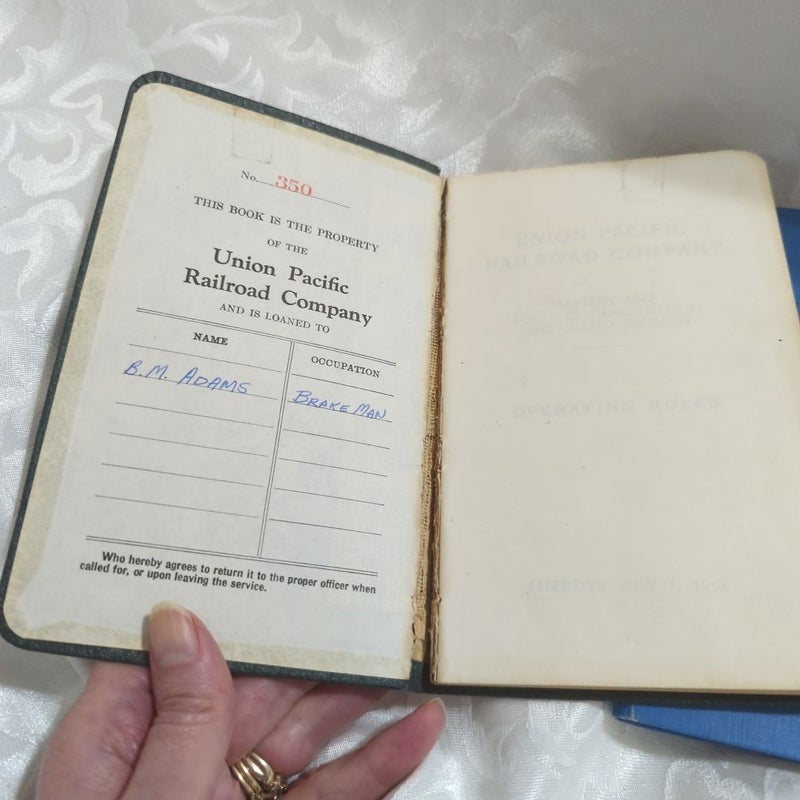 No. 350
THIS BOOK IS THE PROPERTY
OF THE
Union Pacific
Railroad Company
AND IS LOANED TO
NAME OCCUPATION
B.M. ADAMS BRAKE MAN
Who hereby agrees to return it to the proper officer when
called for, or upon leaving the service.
UNION PACIFIC
RAILROAD COMPANY
OPERATING RULES
EFFECTIVE